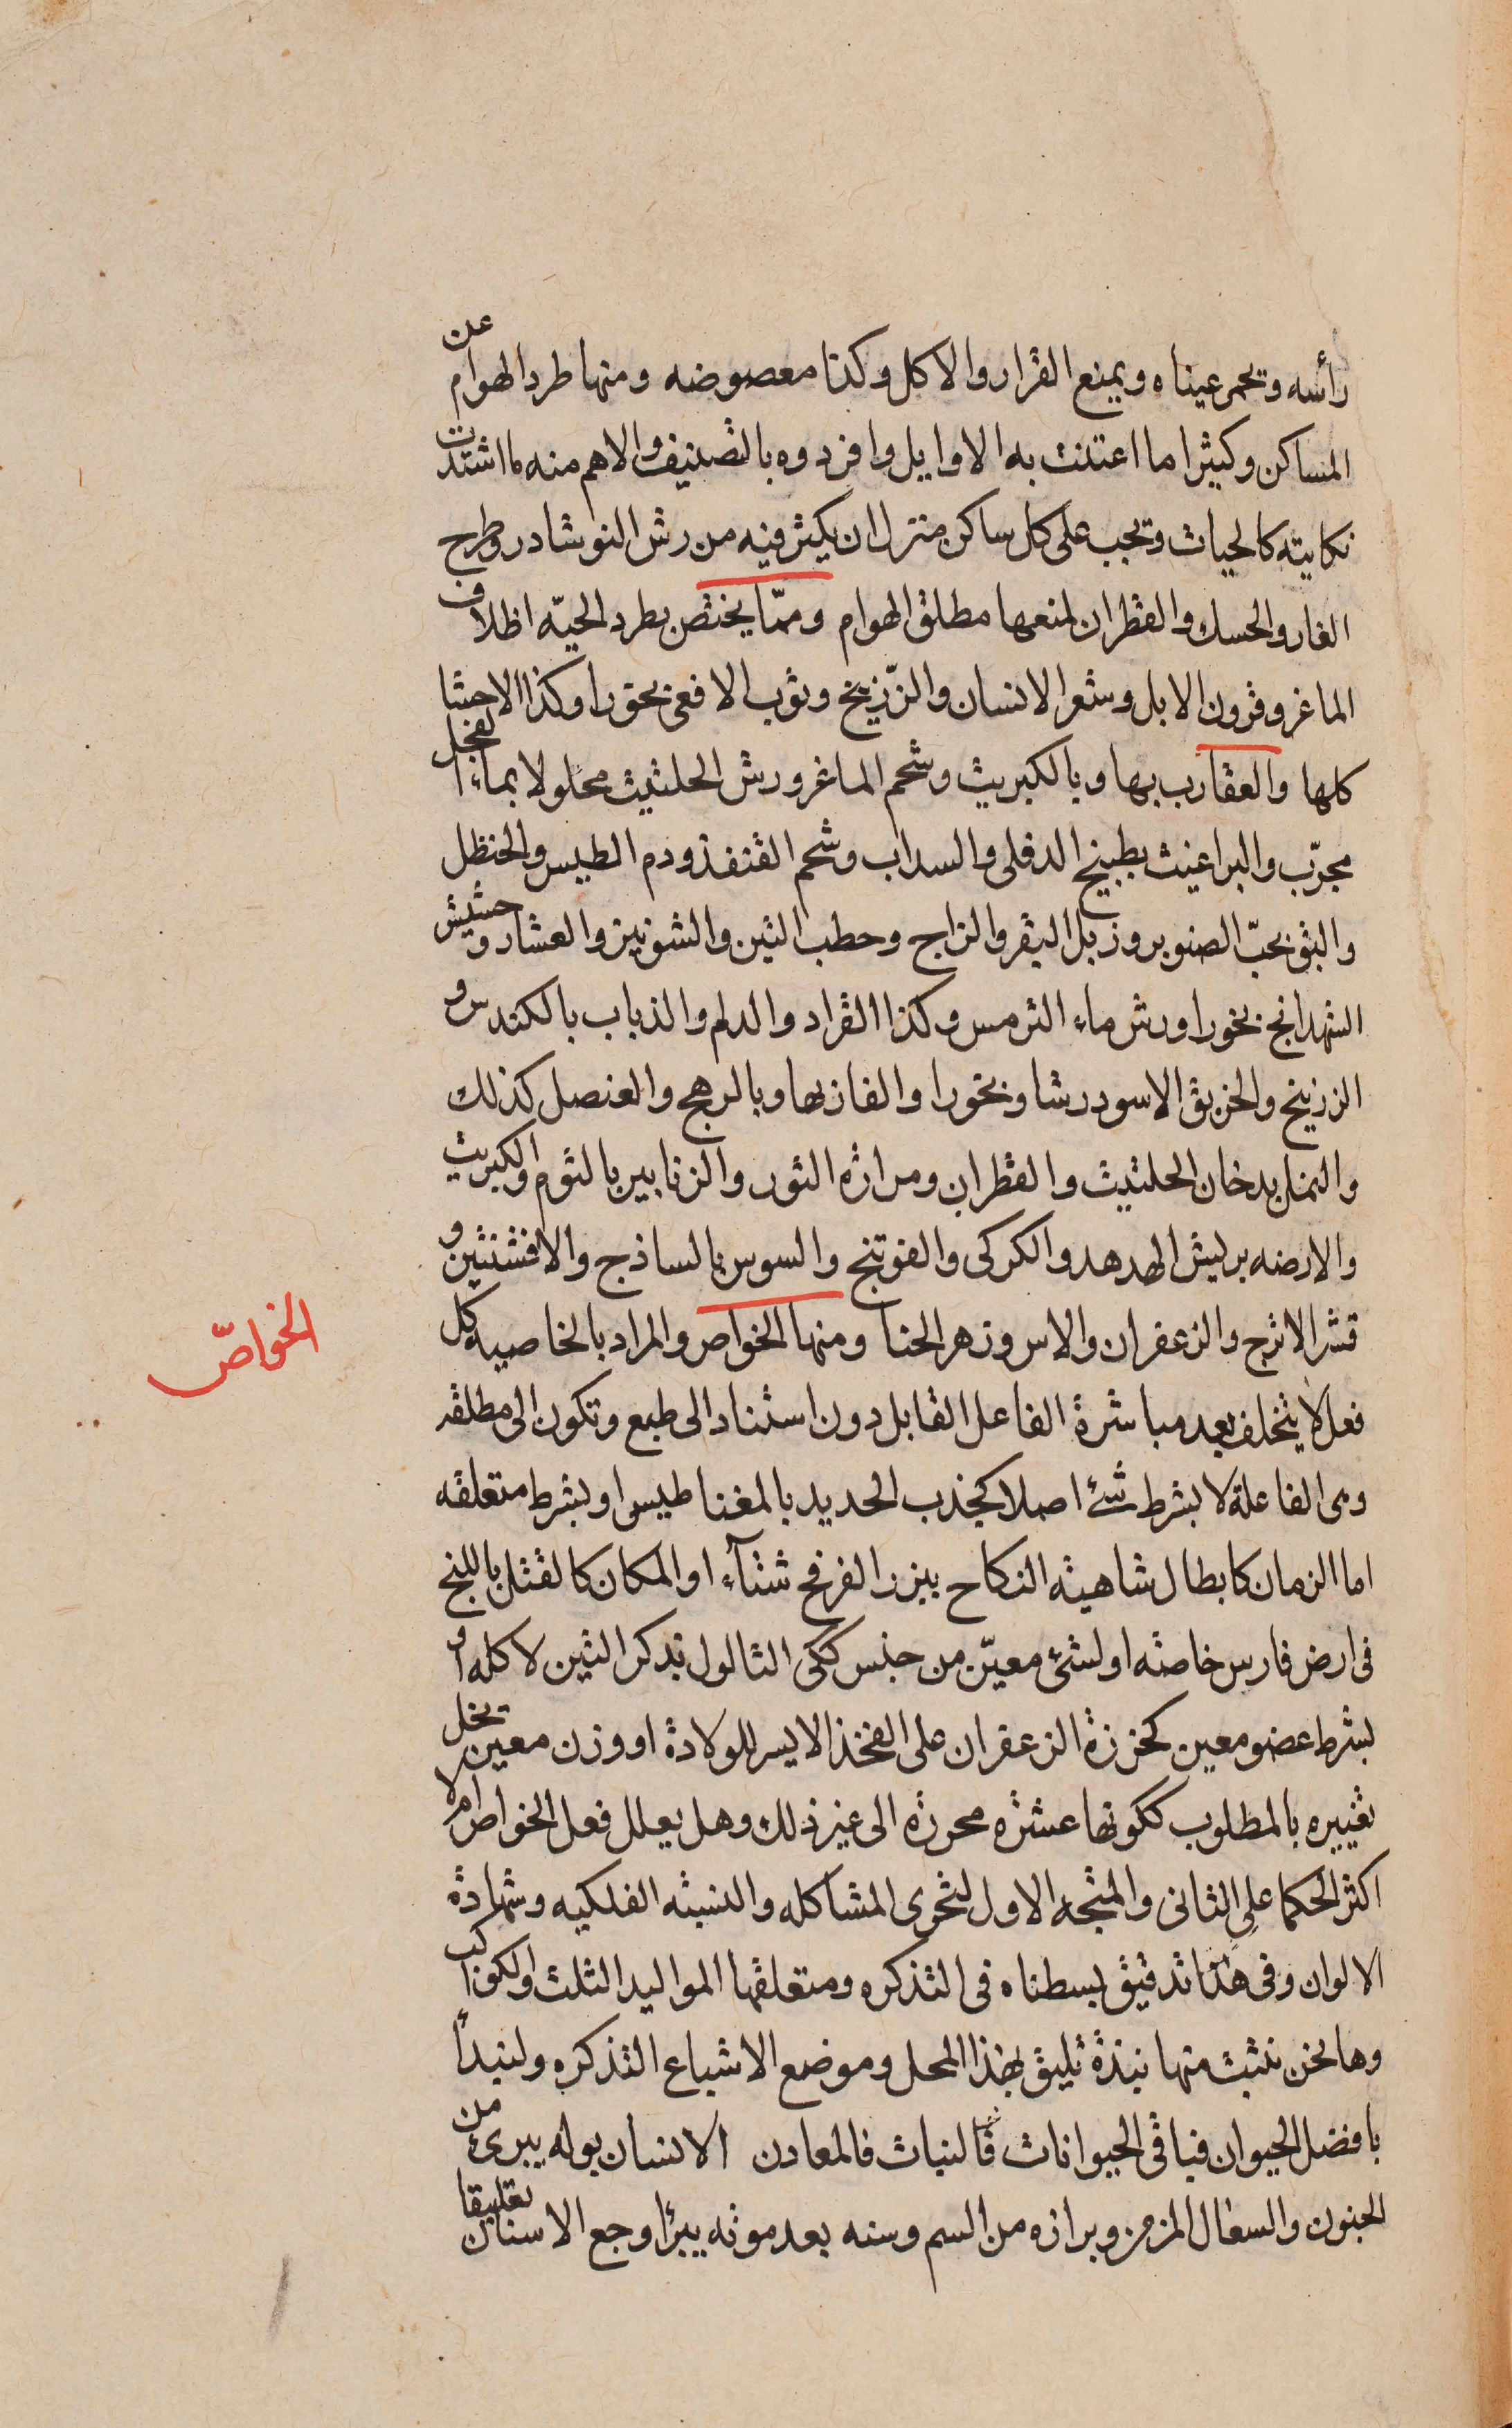 رأسه وتحمر عيناه ويمنع القرار والاكل وكذا معصوضه ومنها طرد الهوام عن
المساكن وكثيرا ما اعتنت به الاوايل وافردوه بالتصنيف والاهم منه ما اشتدت
نكايته كالحيات وتجب على كل ساكن منزل ان يكثر فيه من رش النوشادر وطرح
الغار والحسك والقطران لمنعها مطلق الهوام وممّا يختص بطرد الحيّه اظلاف
الماعز وقرون الابل وشعر الانسان والزّرنيخ وثوب الافعى بخورا وكذا الاحشا
كلها والعقارب بها وبالكبريت وشحم الماعز ورش الحلتيت محلولا بماء الفجل
مجرّب والبراغيث بطبيخ الدفلى والسداب وشحم القنفذ ودم التيس والحنظل
والبق بحبّ الصنوبر وزبل البقر والزاج وحطب التين والشونيز والعشار وحشيش
الشهدانج بخورا ورش ماء الترمس وكذا القراد والدلم والذباب بالكندس و
الزرنيخ والخربق الاسود رشا وبخورا والفار بها وبالرهج والعنصل كذلك
والنمل بدخان الحلتيت والقطران ومرارة الثور والزنابير بالثوم والكبريت
والارضه بريش الهدهد والكركى والفوتنج والسوس بالساذج والافسنتين و
قشر الاترج والزعفران والاس وزهر الحنا ومنها الخواص والمراد بالخاصيه كل
الخواصّ
فعل لا يتخلف بعد مباشرة الفاعل القابل دون استناد الى طبع وتكون الى مطلقه
وهى الفاعلة لا بشرط شئ اصلا كجذب الحديد بالمغناطيس او بشرط متعلقه
اما الزمان كابطال شاهية النكاح ببزر الفرفح شتآء او المكان كالقتل باللبخ
فى ارض فارس خاصة او لشئ معيّن من جنس ككى الثالول بذكر التين لا كله او
بشرط عضو معين كخرزة الزعفران على الفخذ الايسر للولادة او وزن معين يخل
تغييره بالمطلوب ككونها عشرة محررة الى غير ذلك وهل يعلل فعل الخواص ام لا
اكثر الحكما على الثانى والمتجه الاول لتحرى المشاكله والنسبه الفلكيه وشهادة
الالوان وفى هذا تدقيق بسطناه فى التذكره ومتعلقها المواليد الثلث والكواكب
وها نحن نثبت منها نبذة تليق بهذا المحل وموضع الاشباع التذكره ولنبدأ
بافضل الحيوان فباقى الحيوانات فالنبات فالمعادن الانسان بوله يبرئ من
الجنون والسعال المزمن وبرازه من السم وسنه بعد موته يبرأ وجع الاسنان تعليقا